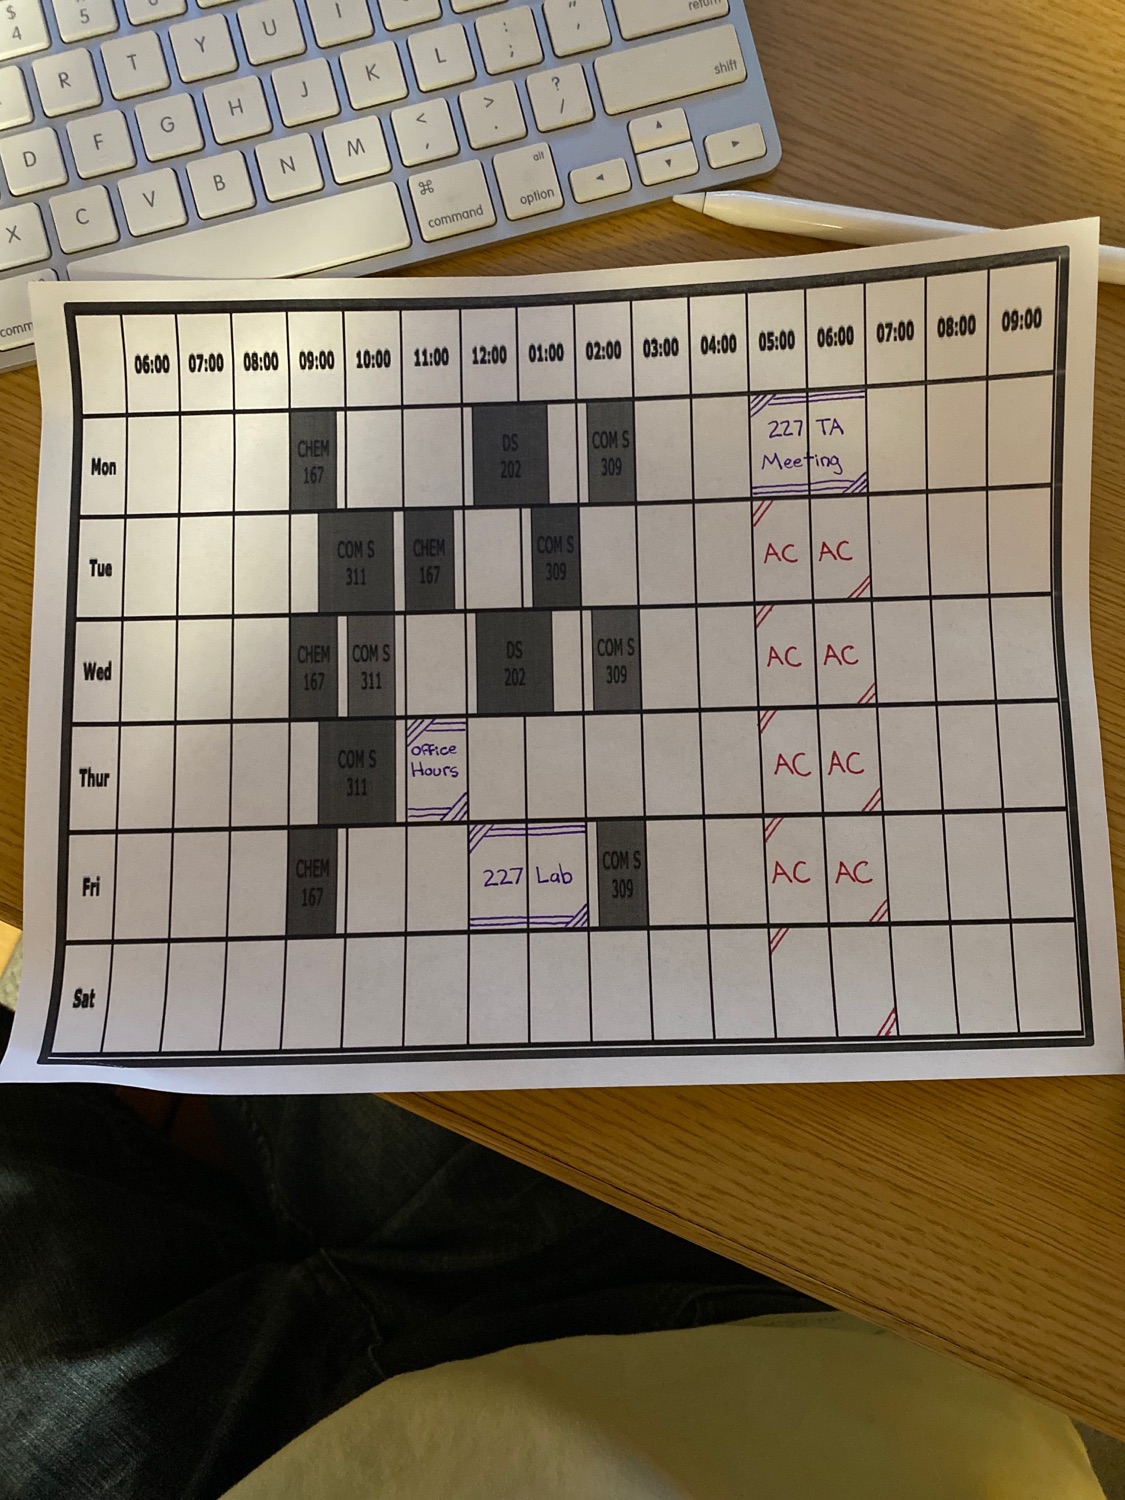 $
4
5
I
return
R
T
Y
U
:
;
"
,
D
F
G
H
J
K
L
shift
X
C
V
B
N
M
<
,
>
.
?
/
⌘
command
alt
option
comm
06:00 07:00 08:00 09:00 10:00 11:00 12:00 01:00 02:00 03:00 04:00 05:00 06:00 07:00 08:00 09:00
Mon
CHEM
167
DS
202
COM S
309
227 TA
Meeting
Tue
COM S
311
CHEM
167
COM S
309
AC AC
Wed
CHEM
167
COM S
311
DS
202
COM S
309
AC AC
Thur
COM S
311
Office
Hours
AC AC
Fri
CHEM
167
227 Lab
COM S
309
AC AC
Sat